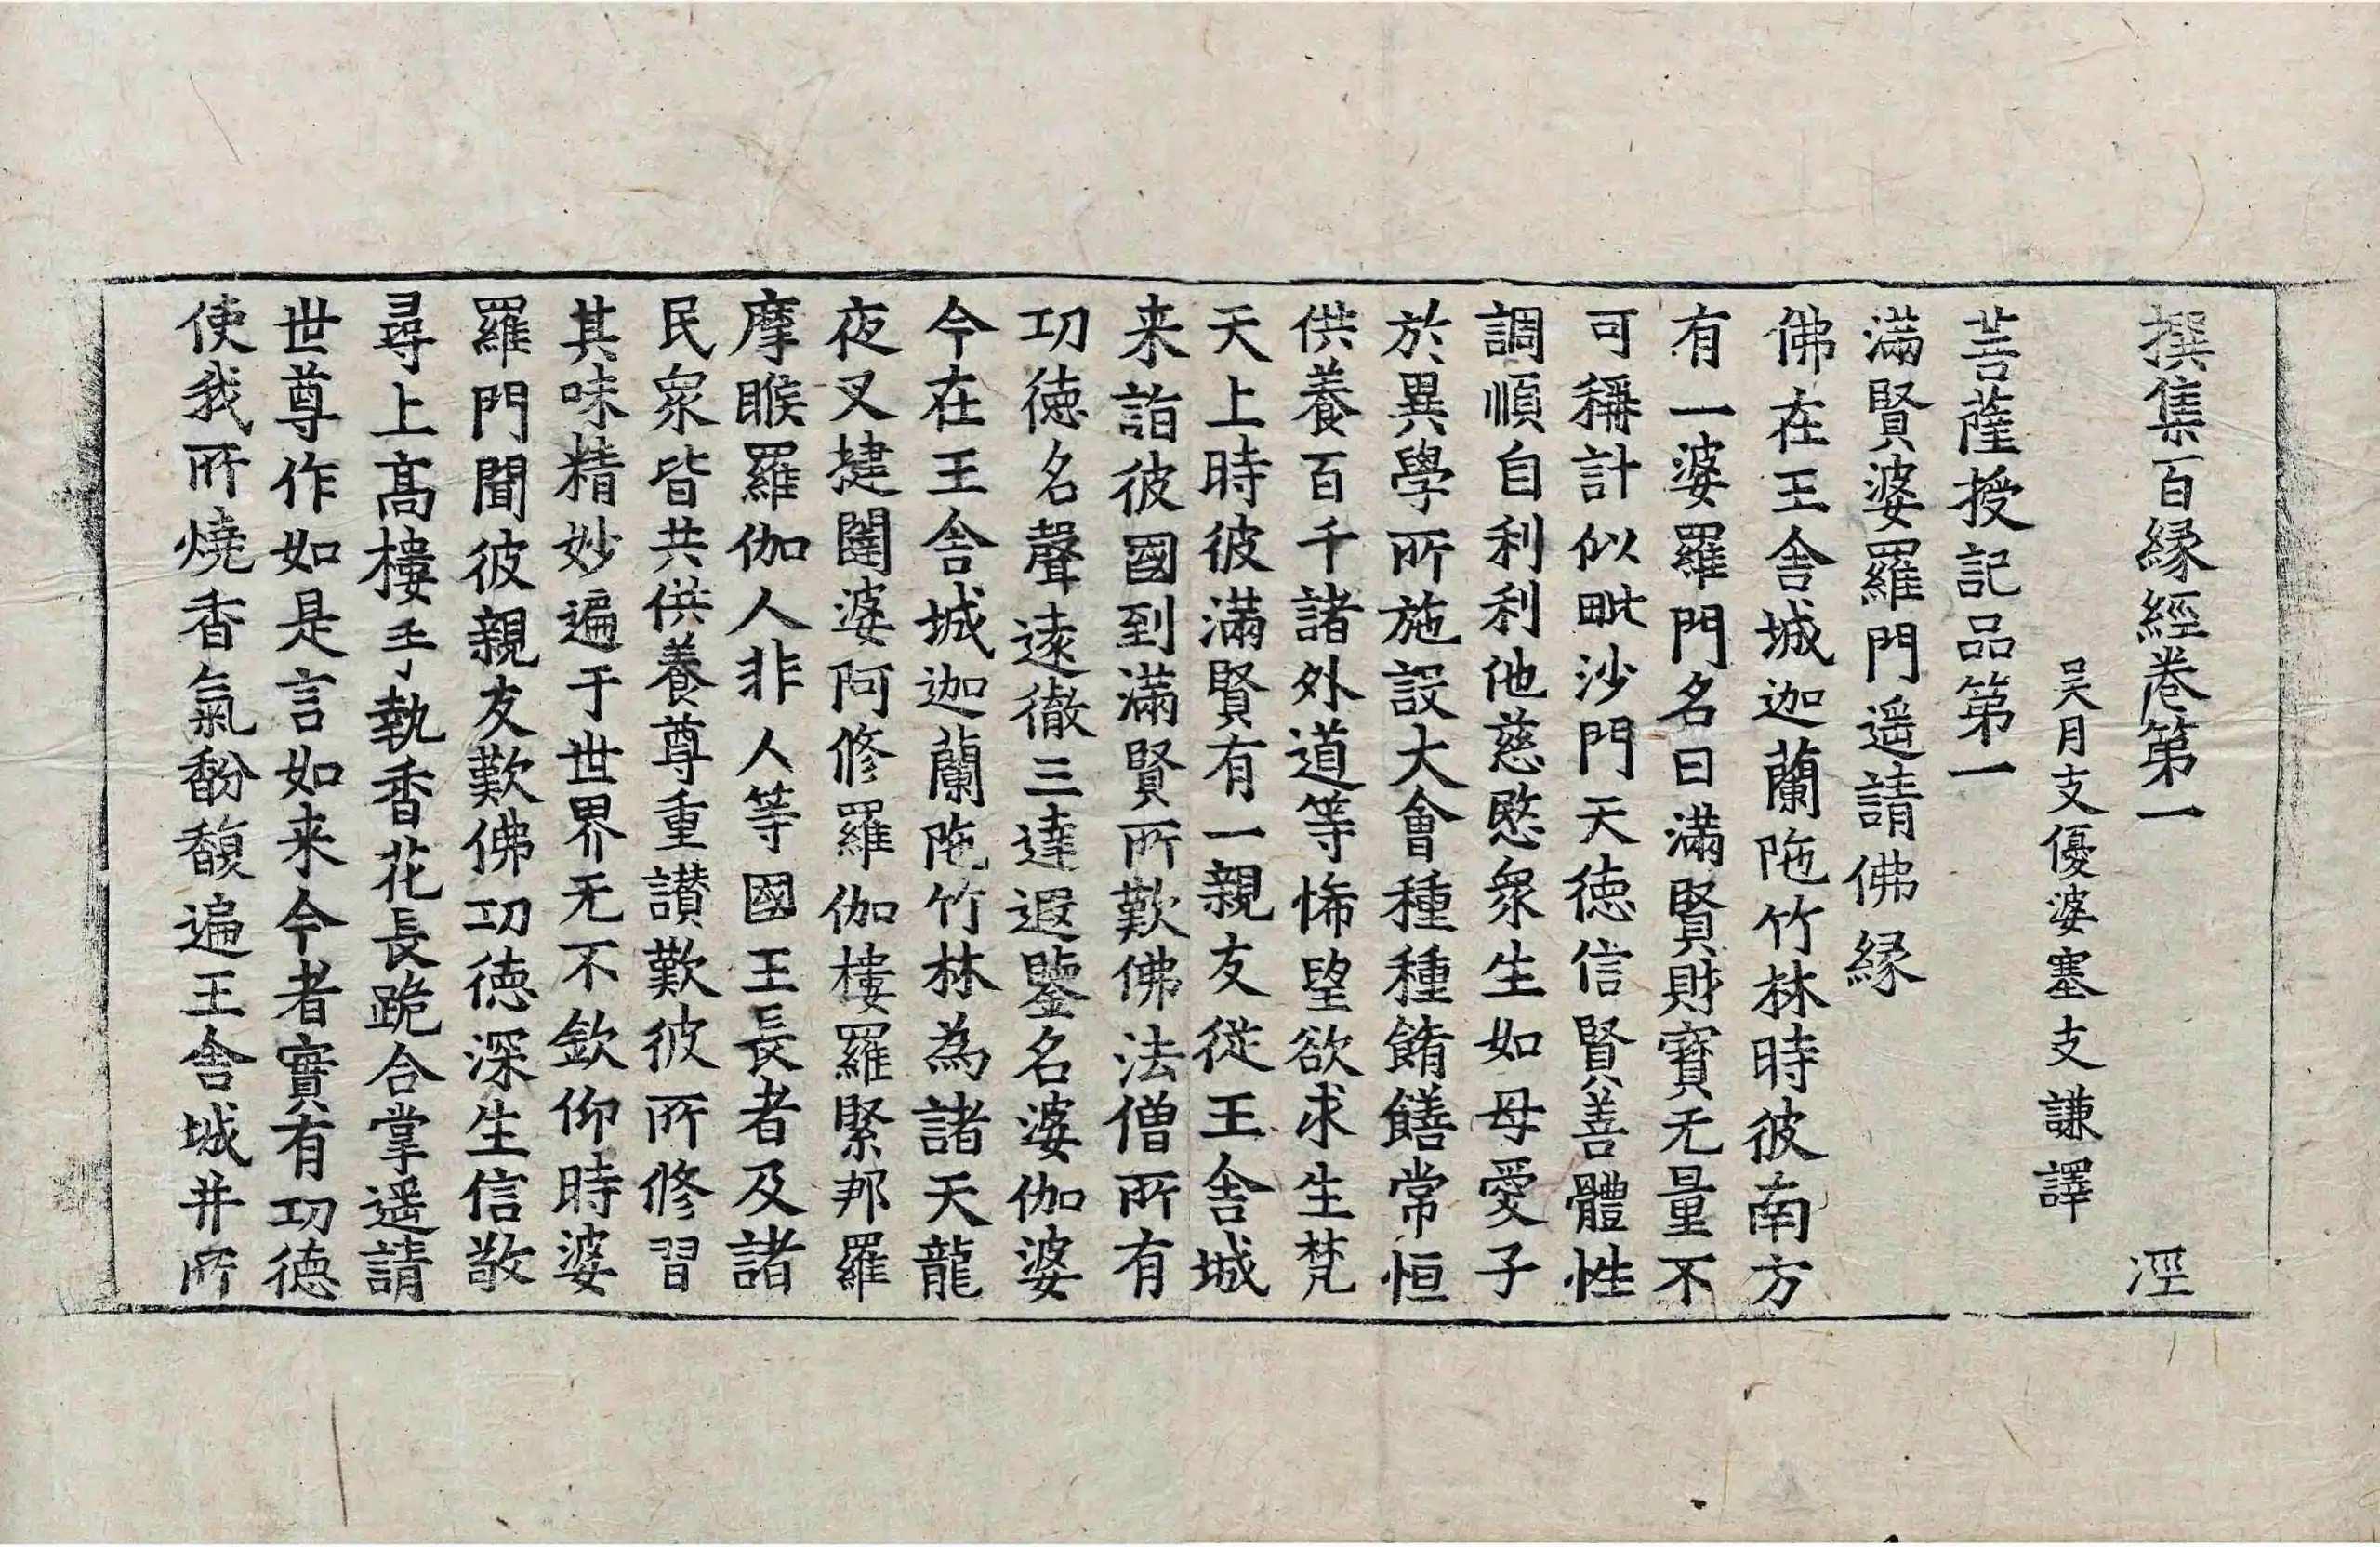 撰集百縁經卷第一 涇
吴月支優婆塞支謙譯
菩薩授記品第一
滿賢婆羅門遥請佛縁
佛在王舍城迦蘭陁竹林時彼南方
有一婆羅門名曰滿賢財寳无量不
可稱計似毗沙門天徳信賢善體性
調順自利利他慈愍衆生如母愛子
於異學所施設大會種種餚饍常恒
供養百千諸外道等悕望欲求生梵
天上時彼滿賢有一親友從王舍城
来詣彼國到滿賢所歎佛法僧所有
功徳名聲逺徹三達遐鑒名婆伽婆
今在王舍城迦蘭陁竹林為諸天龍
夜叉揵闥婆阿修羅伽樓羅緊那羅
摩睺羅伽人非人等國王長者及諸
民衆皆共供養尊重讃歎彼所修習
其味精妙遍于世界无不欽仰時婆
羅門聞彼親友歎佛功徳深生信敬
尋上髙樓手執香花長跪合掌遥請
世尊作如是言如来今者實有功徳
使我所燒香氣馚馥遍王舍城并所